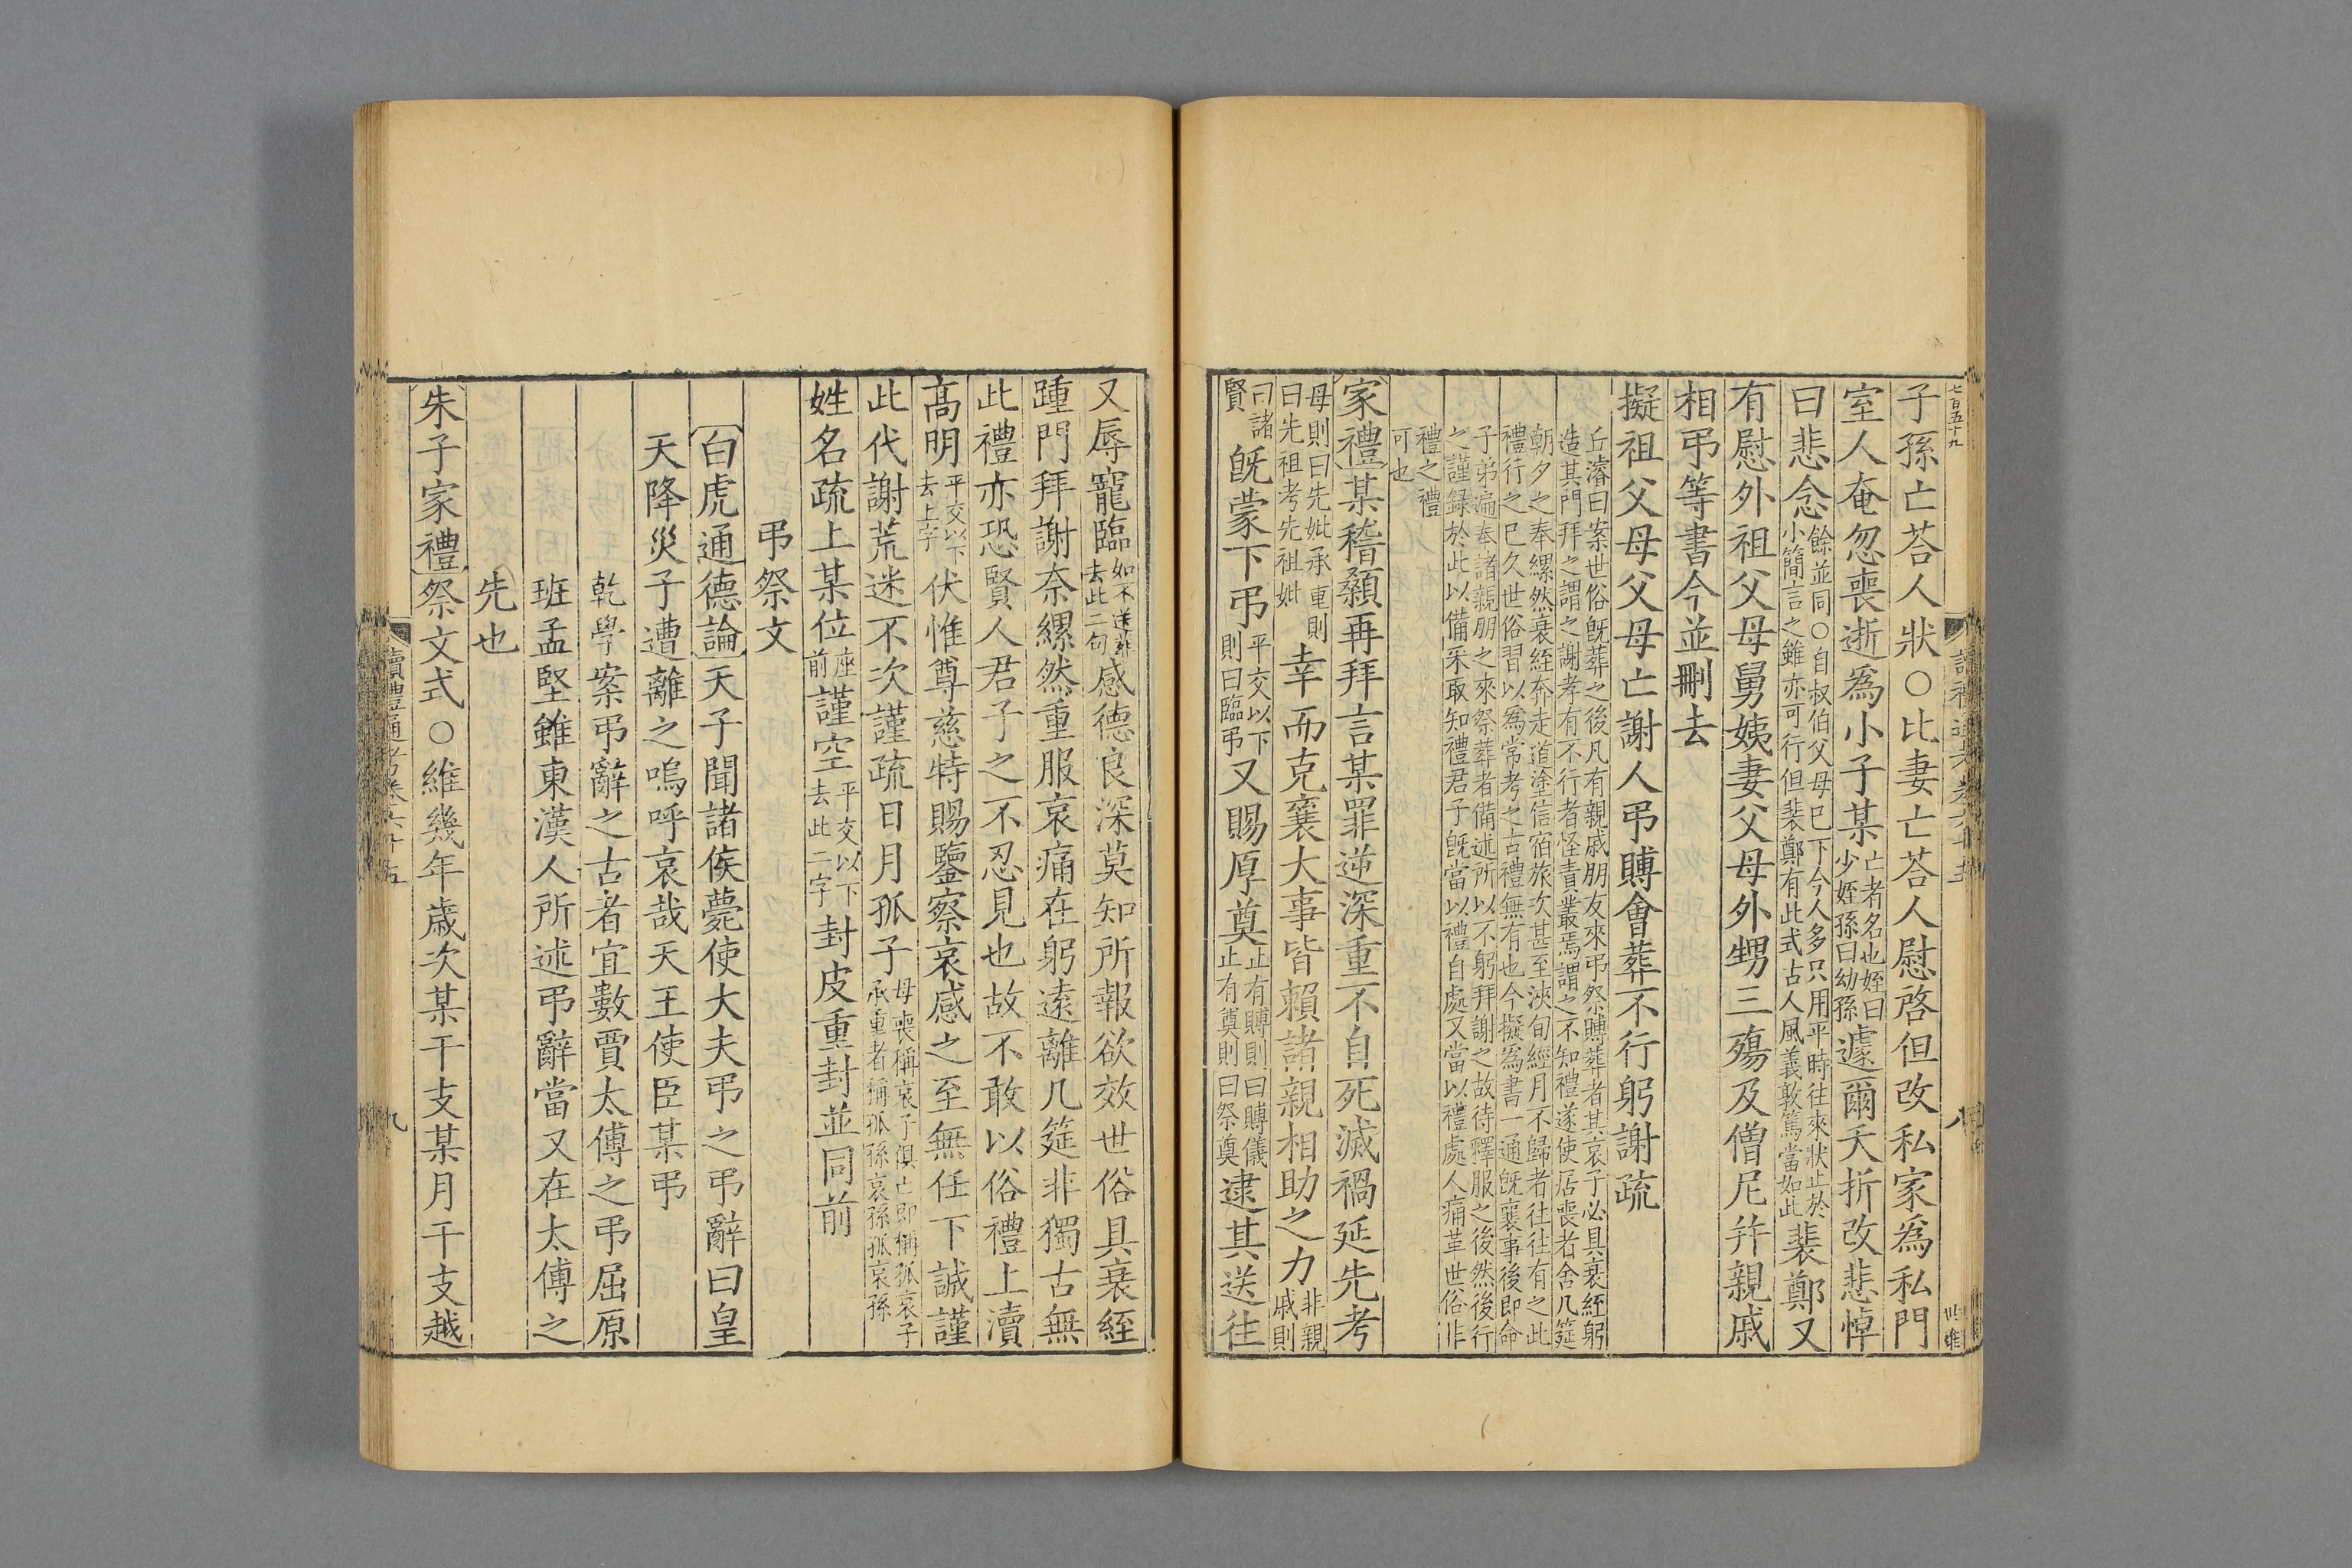 七百五十九
子孫亡荅人狀○比妻亡荅人慰啓但改私家爲私門
室人奄忽喪逝爲小子某亡者名也姪曰少姪孫曰幼孫遽爾夭折改悲悼
曰悲念餘並同○自叔伯父母已下今人多只用平時往來狀止於小簡言之雖亦可行但裴鄭有此式古人風義敦篤當如此裴鄭又
有慰外祖父母舅姨妻父母外甥三殤及僧尼幷親戚
相弔等書今並刪去
擬祖父母父母亡謝人弔賻會葬不行躬謝疏
丘濬曰案世俗旣葬之後凡有親戚朋友來弔祭賻葬者其哀子必具衰絰躬
造其門拜之謂之謝孝有不行者怪責叢焉謂之不知禮遂使居喪者舍几筵
朝夕之奉縲然衰絰奔走道塗信宿旅次甚至浹旬經月不歸者往往有之此
禮行之已久世俗習以爲常考之古禮無有也今擬爲書一通旣襄事後即命
子弟遍奉諸親朋之來祭葬者備述所以不躬拜謝之故待釋服之後然後行
之謹錄於此以備采取知禮君子旣當以禮自處又當以禮處人痛革世俗非
禮之禮
可也
家禮某稽顙再拜言某罪逆深重不自死滅禍延先考
母則曰先妣承重則曰先祖考先祖妣幸而克襄大事皆賴諸親相助之力非親戚則
曰諸賢旣蒙下弔平交以下則曰臨弔又賜厚奠止有賻則曰賻儀止有奠則曰祭奠逮其送往
又辱寵臨如不送葬去此二句感德良深莫知所報欲效世俗具衰絰
踵門拜謝奈縲然重服哀痛在躬遠離几筵非獨古無
此禮亦恐賢人君子之不忍見也故不敢以俗禮上瀆
高明平交以下去上字伏惟尊慈特賜鑒察哀感之至無任下誠謹
此代謝荒迷不次謹疏日月孤子母喪稱哀子俱亡即稱孤哀子承重者稱孤孫哀孫孤哀孫
姓名疏上某位座前謹空平交以下去此二字封皮重封並同前
弔祭文
白虎通德論天子聞諸侯薨使大夫弔之弔辭曰皇
天降災子遭離之嗚呼哀哉天王使臣某弔
乾學案弔辭之古者宜數賈太傅之弔屈原
班孟堅雖東漢人所述弔辭當又在太傅之
先也
朱子家禮祭文式○維幾年歲次某干支某月干支越
讀禮通考卷六十五
九